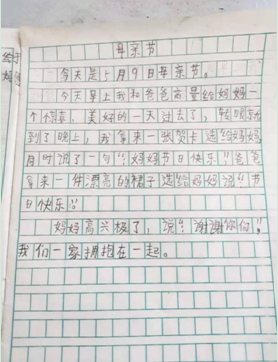 母亲节
今天是5月9日母亲节。
今天早上我和爸爸商量给妈妈一
个惊喜,美好的一天过去了,转眼
到了晚上,我拿来一张贺卡送给妈妈
同时说了一句“妈妈节日快乐!”爸爸
拿来一件漂亮的裙子送给妈妈说“节
日快乐!”
妈妈高兴极了,说“谢谢你们”,
我们一家拥抱在一起。